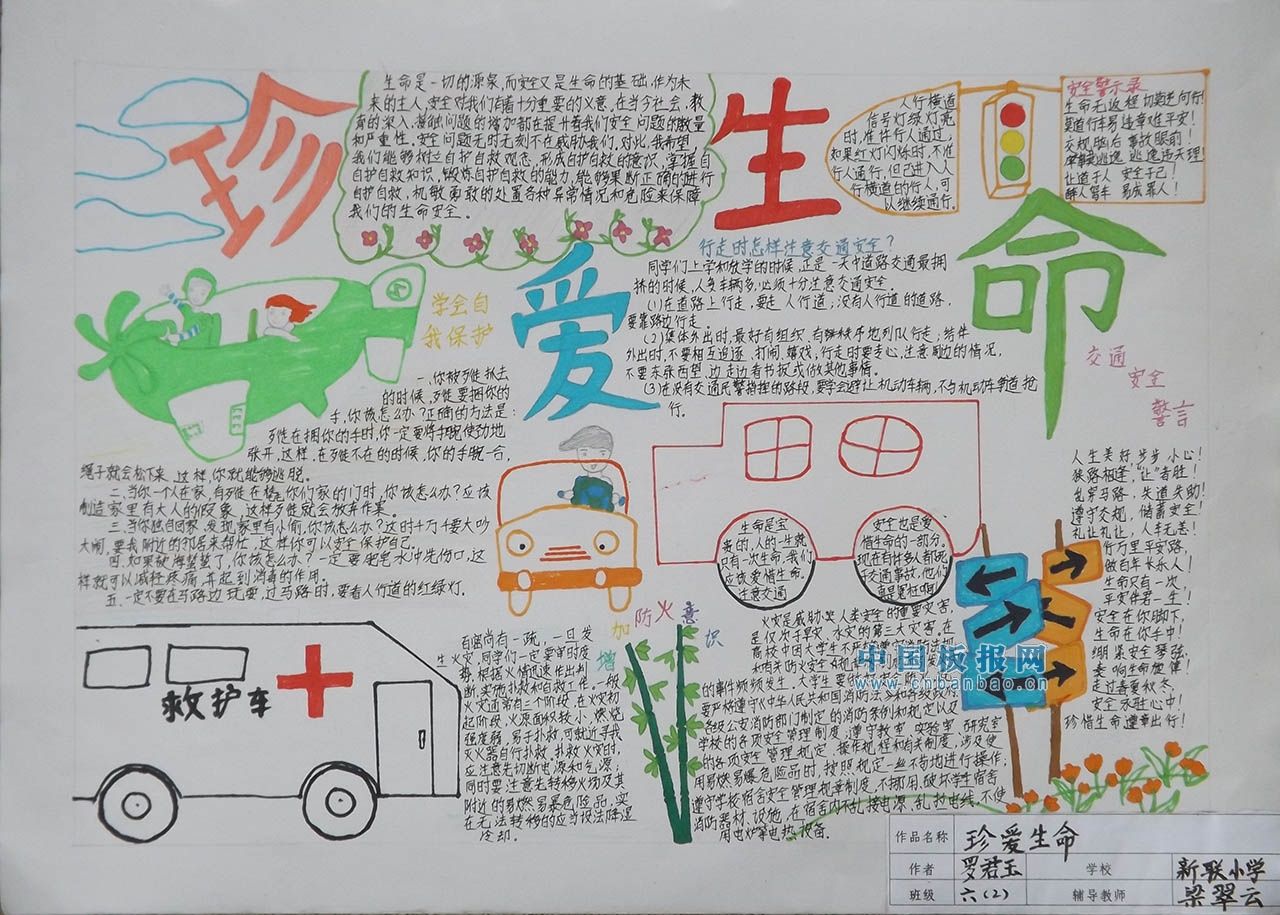 珍
爱
生
命
生命是一切的源泉,而安全又是生命的基础.作为未
来的主人,安全对我们有着十分重要的义意.在当今社会,教
育的深入,接触问题的增加都在提升着我们安全问题的数量
和严重性.安全问题无时无刻不在威胁我们.对此,我希望,
我们能够树立自护自救观念,形成自护自救的意识,掌握自
自护自救知识,锻炼自护自救的能力,能够果断正确的进行
自护自救,机敏勇敢的处置各种异常情况和危险来保障
我们的生命安全。
人行横道
信号灯绿灯亮
时,准许行人通过;
如果红灯闪烁时,不准
行人通行,但已进入人
行横道的行人,可
以继续通行.
安全警示录
生命无返程 切莫逆向行!
莫道行车易 违章难平安!
交规脑后 事故眼前!
肇事莫逃逸 逃逸违天理!
让道于人 安全于己!
醉人驾车 易成罪人!
行走时怎样注意交通安全?
同学们上学和放学的时候,正是一天中道路交通最拥
挤的时候,人多车辆多,必须十分注意交通安全.
(1)在道路上行走,要走人行道;没有人行道的道路,
要靠路边行走。
(2)集体外出时,最好有组织、有秩序地列队行走;结伴
外出时,不要相互追逐、打闹、嬉戏,行走时要专心,注意周边的情况,
不要东张西望、边走边看书报或做其他事情。
(3)在没有交通民警指挥的路段,要学会避让机动车辆,不与机动车争道抢
行。
学会自
我保护
一、你被歹徒抓去
的时候,歹徒要捆你的
手,你该怎么办?正确的方法是:
歹徒在捆你的手时,你一定要将手腕使劲地
张开,这样,在歹徒不在的时候,你的手腕一合,
绳子就会松下来,这样,你就能够逃脱。
二、当你一个人在家,有歹徒在撬你们家的门时,你该怎么办?应该
制造家里有大人的假象,这样歹徒就会放弃作案。
三、当你独自回家,发现家里有小偷,你该怎么办?这时千万不要大吵
大闹,要找附近的邻居来帮忙,这样你可以安全保护自己.
四、如果被海蜇蜇了,你该怎么办?一定要肥皂水冲洗伤口,这
样就可以减轻疼痛,并起到消毒的作用。
五、一定不在马路边玩耍,过马路时,要看人行道的红绿灯.
生命是宝
贵的,人的一生就
只有一次生命,我们
应该爱惜生命.
注意交通
安全也是爱
惜生命的一部分,
现在有许多人都死
于交通事故,他们
真是冤枉啊!
交通
安全
警言
人生美好 步步小心!
狭路相逢,"让"者胜!
乱穿马路,失道失助!
遵守交规,储蓄安全!
礼让礼让,人车无恙!
行万里平安路,
做百年长乐人!
生命只有一次,
平安伴君一生!
安全在你脚下,
生命在你手中!
绷紧安全琴弦,
奏响生命旋律!
走过春夏秋冬,
安全永驻心中!
珍惜生命遵章出行!
救护车
增
加
防
火
意
识
百密尚有一疏,一旦发
生火灾,同学们一定要审时度
势,根据火情迅速作出判
断,实施扑救和自救工作.一般
火灾通常有三个阶段,在火灾初
起阶段,火源面积较小,燃烧
强度弱,易于扑救,可就近寻找
灭火器自行扑救.扑救火灾时,
应注意先切断电源和气源;
同时要注意先转移火场及其
附近的易燃易爆危险品,实
在无法转移的应当设法降温
冷却.
火灾是威胁人类安全的重要灾害,
是仅次于旱灾、水灾的第三大灾害,在
的事件频频发生.大学生要
要严格遵守《中华人民共和国消防法》和
各级公安消防部门制定的消防条例和规定以及
学校的各项安全管理制度;遵守教室、实验室、研究室
的各项安全管理规定、操作规程和有关制度,涉及使
用易燃易爆危险品时,按照规定一丝不苟地进行操作;
遵守学校宿舍安全管理规章制度,不挪用、破坏学生宿舍
消防器材、设施,在宿舍内不乱接电源、乱拉电线、不使
用电炉等电热设备。
中国板报网
www.cnbanbao.cn
作品名称 珍爱生命
作者 罗君玉 学校 新联小学
班级 六(2) 辅导教师 梁翠云